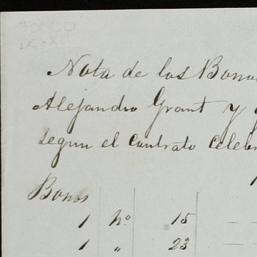 Nota de los Bonos
Alejandro Grant y
segun el contrato celeb
Bonos
1 No. 15
1 " 23